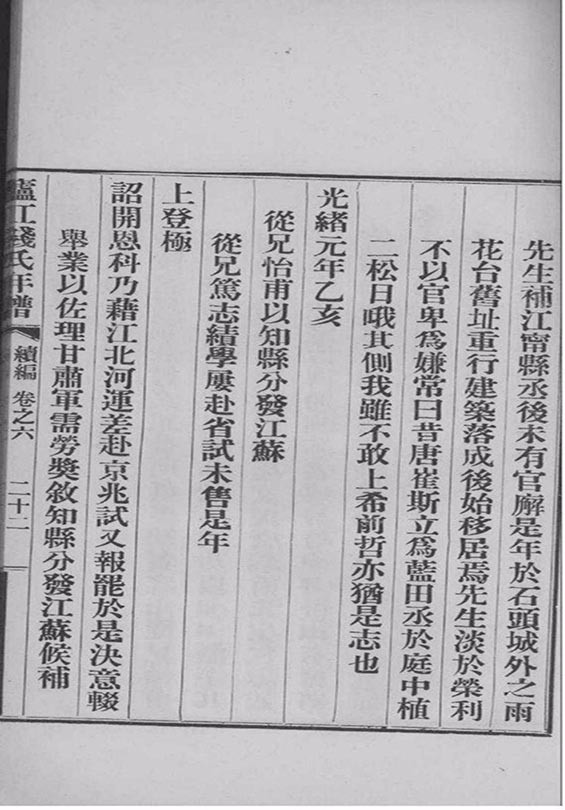 先生補江甯縣丞後未有官廨是年於石頭城外之雨
花台舊址重行建築落成後始移居焉先生淡於榮利
不以官卑爲嫌常曰昔唐崔斯立爲藍田丞於庭中植
二松日哦其側我雖不敢上希前哲亦猶是志也
光緒元年乙亥
從兄怡甫以知縣分發江蘇
從兄篤志績學屢赴省試未售是年
上登極
詔開恩科乃藉江北河運差赴京兆試又報罷於是決意輟
舉業以佐理甘肅軍需勞獎敘知縣分發江蘇候補
廬江錢氏年譜 續編 卷之六 二十二